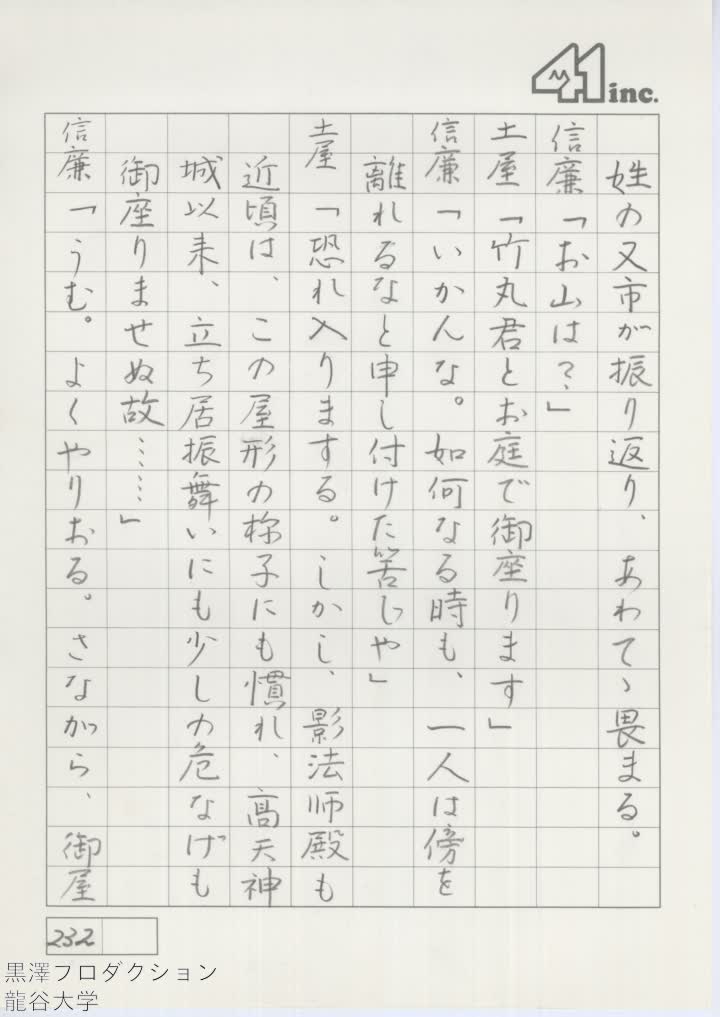 41 inc.
姓の又市が振り返り、あわてゝ畏まる。
信廉「お山は？」
土屋「竹丸君とお庭で御座ります」
信廉「いかんな。如何なる時も、一人は傍を
離れるなと申し付けた筈じや」
土屋「恐れ入りまする。しかし、影法師殿も
近頃は、この屋形の様子にも慣れ、高天神
城以来、立ち居振舞いにも少しの危なげも
御座りませぬ故……」
信廉「うむ。よくやりおる。さながら、御屋
232
黒澤プロダクション
龍谷大学